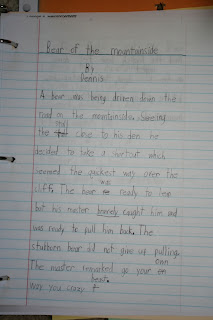 Bear of the mountainside
By
Dennis
A bear was being driven down the
road on the mountainside. Seeing
the close to his den he
decided to take a shortcut which
seemed the quickest way over the
cliff. The bear was ready to leap
but his master barely caught him and
was ready to pull him back. The
stubborn bear did not give up pulling.
The master remarked go your own
way you crazy bear.